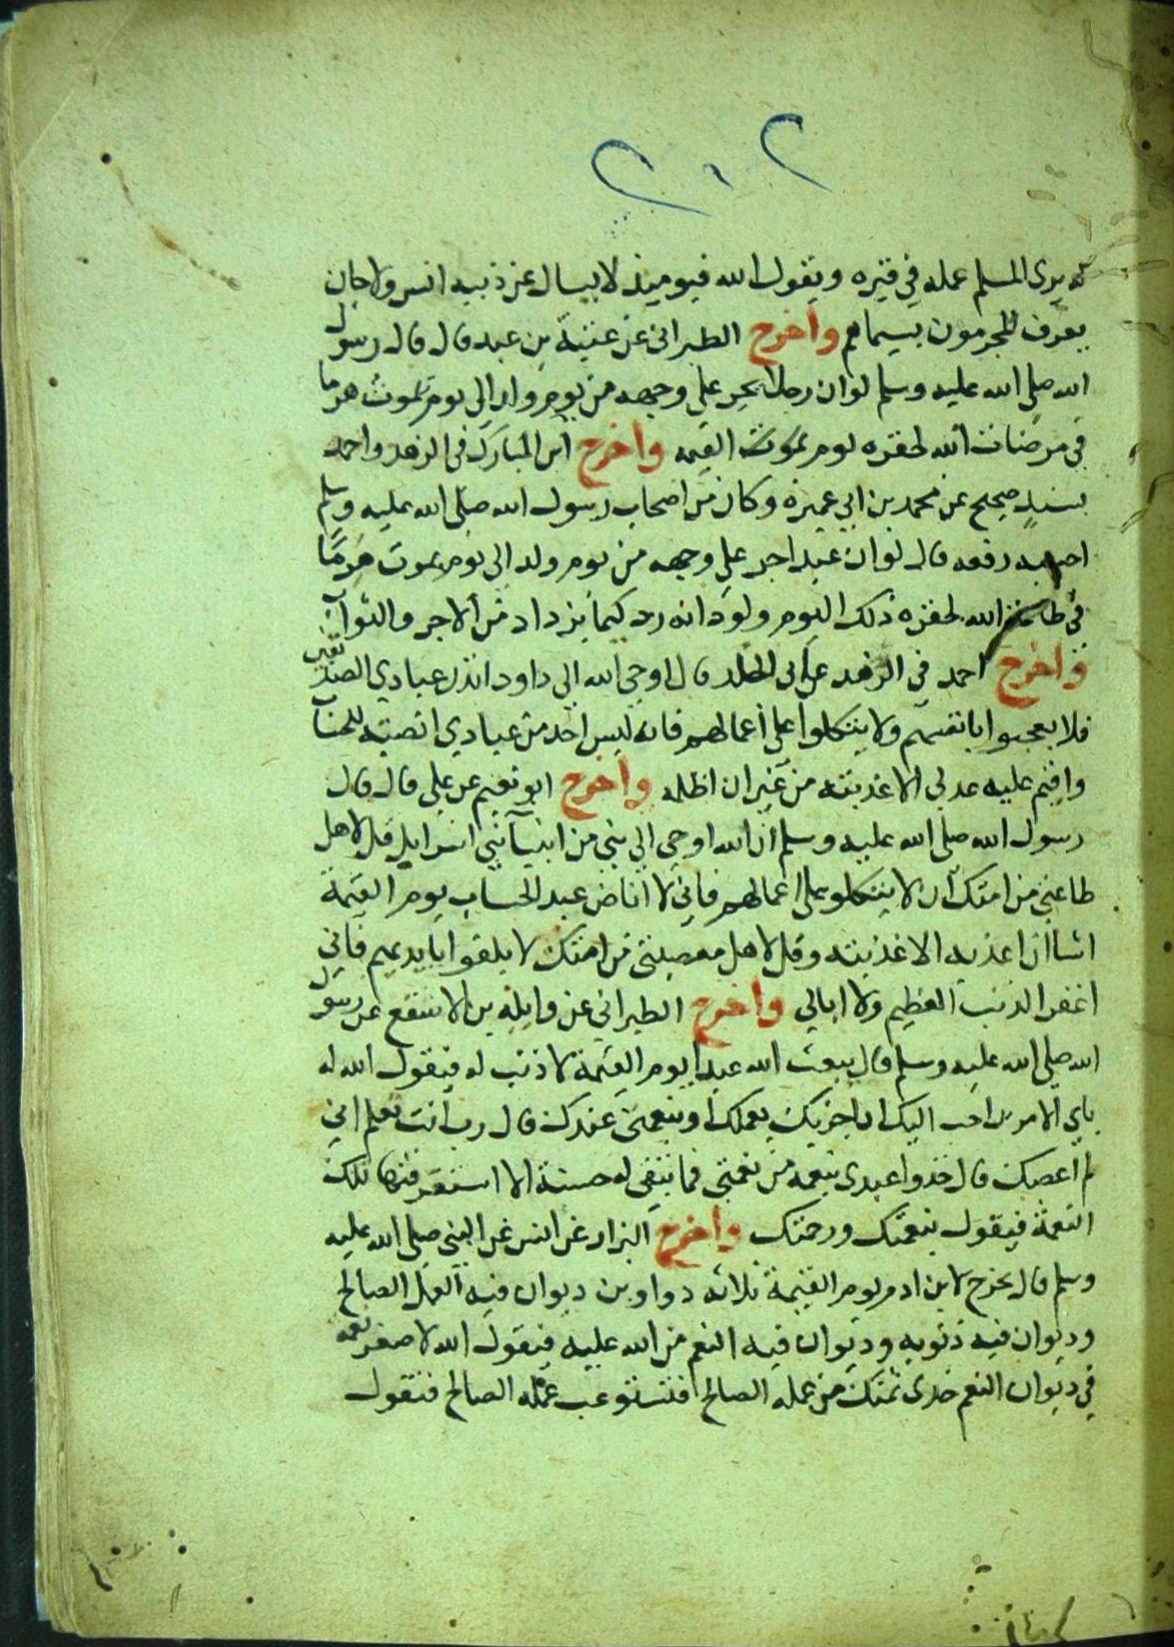 ٢٠٢
له يرى المسلم عمله في قبره ويقول الله فيوميذ لا يسال عن ذنبه انس ولا جان
يعرف المجرمون بسيماهم واخرج الطبراني عن عتبة بن عبد قال قال رسول
الله صلى الله عليه وسلم لو ان رجلا يجر على وجهه من يوم ولد الى يوم يموت هرما
في مرضات الله لحقره يوم القيمه واخرج ابن المبارك في الزهد واحمد
بسند صحيح عن محمد بن ابي عميرة وكان من اصحاب رسول الله صلى الله عليه وسلم
رفعه قال لو ان عبدا جر على وجهه من يوم ولد الى يوم يموت هرما
في طاعة الله لحقره ذلك اليوم ولود انه رد كيما يزداد من الاجر والثواب
واخرج احمد في الزهد عن ابي الجلد قال اوحى الله الى داود انذر عبادي الصديقين
فلا يعجبوا بانفسهم ولا يتكلوا على اعمالهم فانه ليس احد من عبادي انصبه للحساب
واقيم عليه عدلي الا عذبته من غير ان اظلمه واخرج ابو نعيم عن علي قال قال
رسول الله صلى الله عليه وسلم ان الله اوحى الى نبي من انبيآ بني اسرايل قل لاهل
طاعتي من امتك ان لا يتكلو على اعمالهم فاني لا اناض عبد الحساب يوم القيمة
اشا ان اعذبه الا عذبته وقل لاهل معصيتي من امتك لا يلقوا بايديهم فاني
اغفر الذنب العظيم ولا ابالي واخرج الطبراني عن واثلة بن الاسقع عن رسول
الله صلى الله عليه وسلم قال يبعث الله عبدا يوم القيمة لا ذنب له فيقول الله له
باي الامرين احب اليك ان اجزيك بعملك او بنعمتي عندك قال رب انت تعلم اني
لم اعصك قال خذوا عبدي بنعمه من نعمتي فما يبقى له حسنة الا استغرقتها تلك
النعمة فيقول بنعمتك ورحمتك واخرج البزار عن انس عن النبي صلى الله عليه
وسلم قال يخرج لابن ادم يوم القيمة ثلاثه دواوين ديوان فيه العمل الصالح
وديوان فيه ذنوبه وديوان فيه النعم من الله عليه فيقول الله لاصغر نعمه
في ديوان النعم خذي ثمنك من عمله الصالح فتستوعب عمله الصالح فتقول